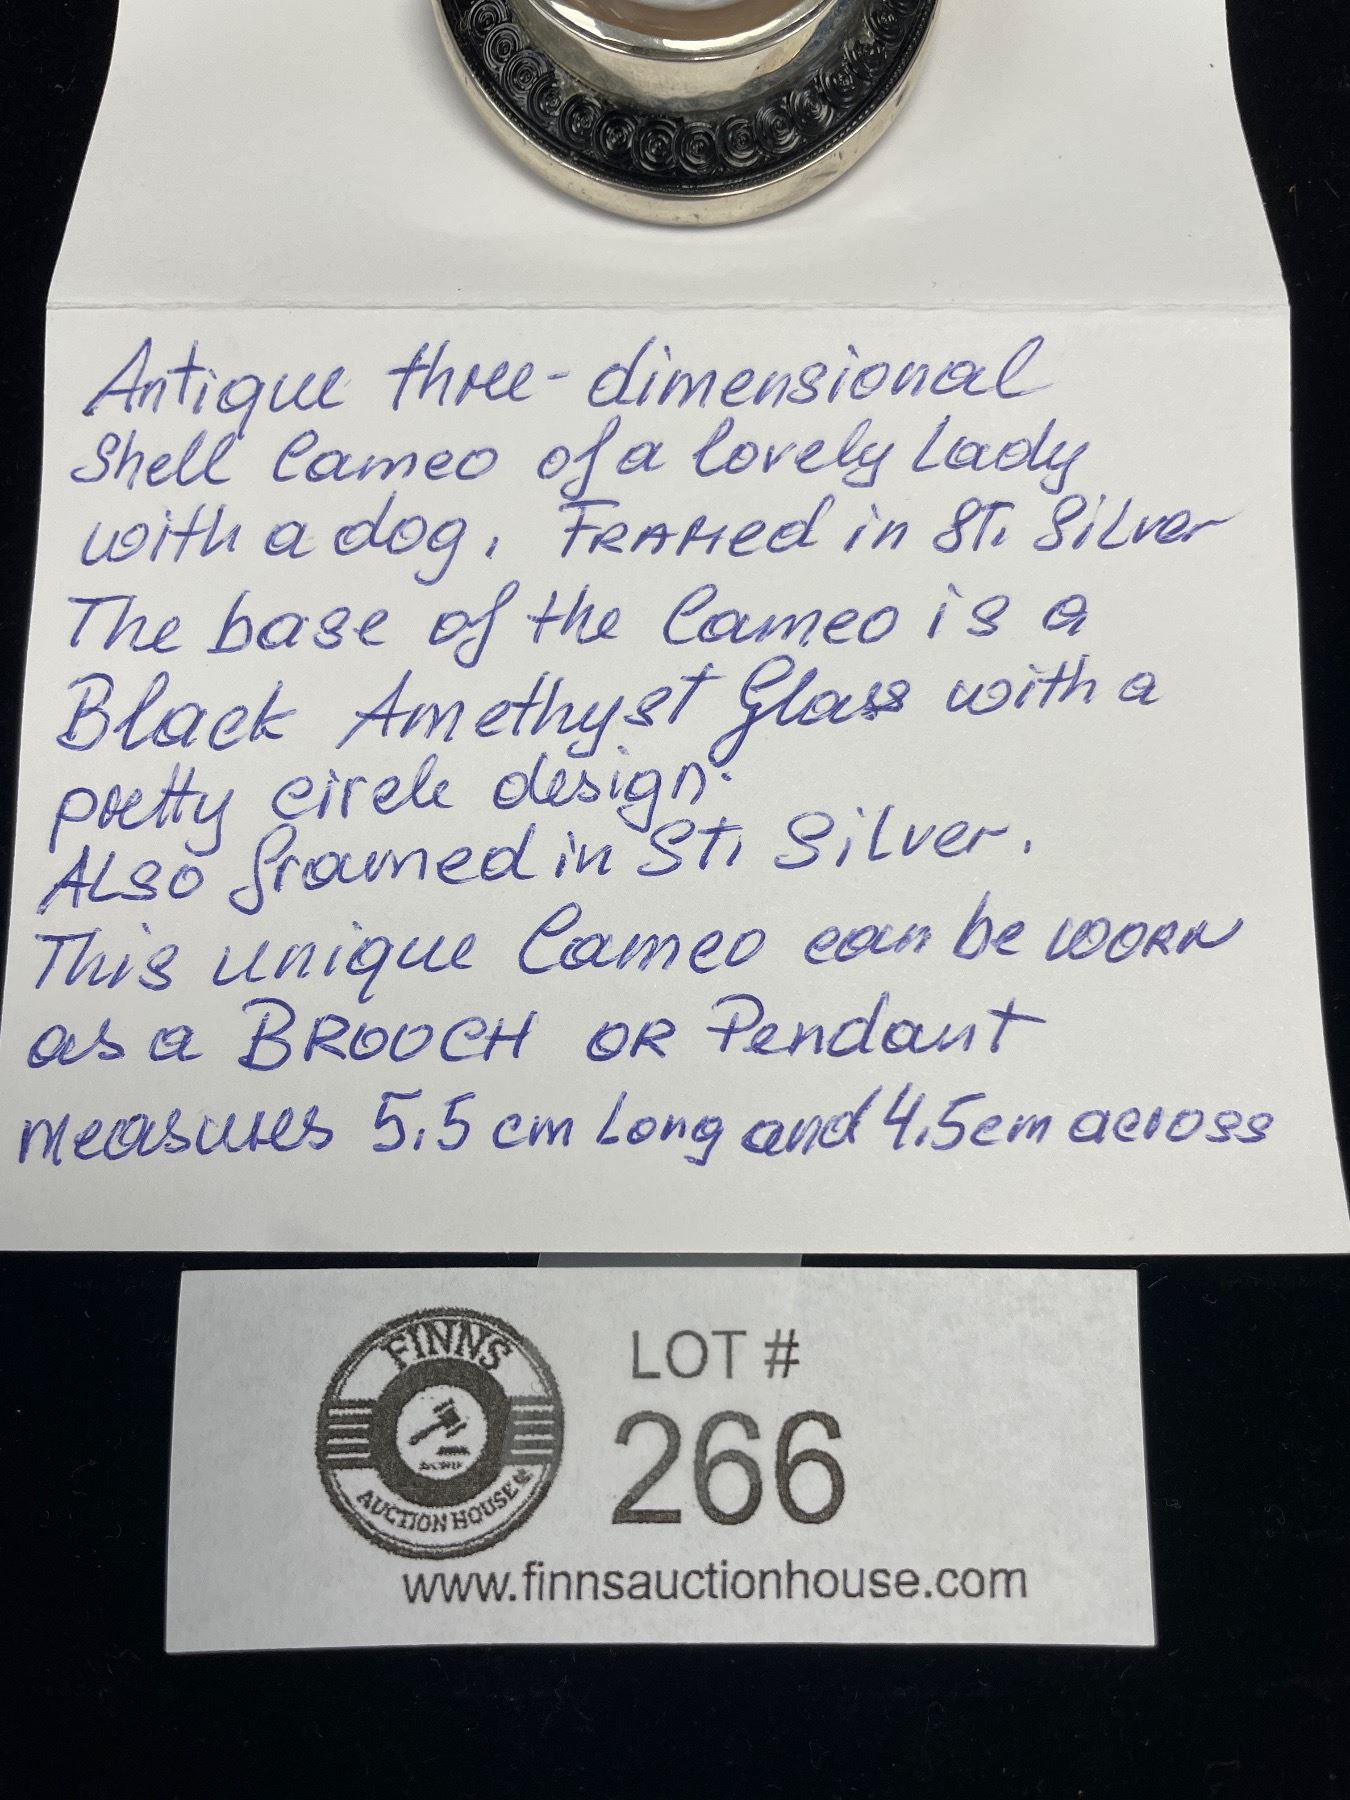 Antique three-dimensional
Shell Cameo of a lovely Lady
with a dog. FRAMed in St. Silver
The base of the Cameo is a
Black Amethyst Glass with a
pretty circle design.
ALSO framed in St. Silver.
This unique Cameo can be WORN
as a BROOCH OR Pendant
measures 5.5 cm Long and 4.5cm across
FINNS
AUCTION HOUSE
LOT #
266
www.finnsauctionhouse.com